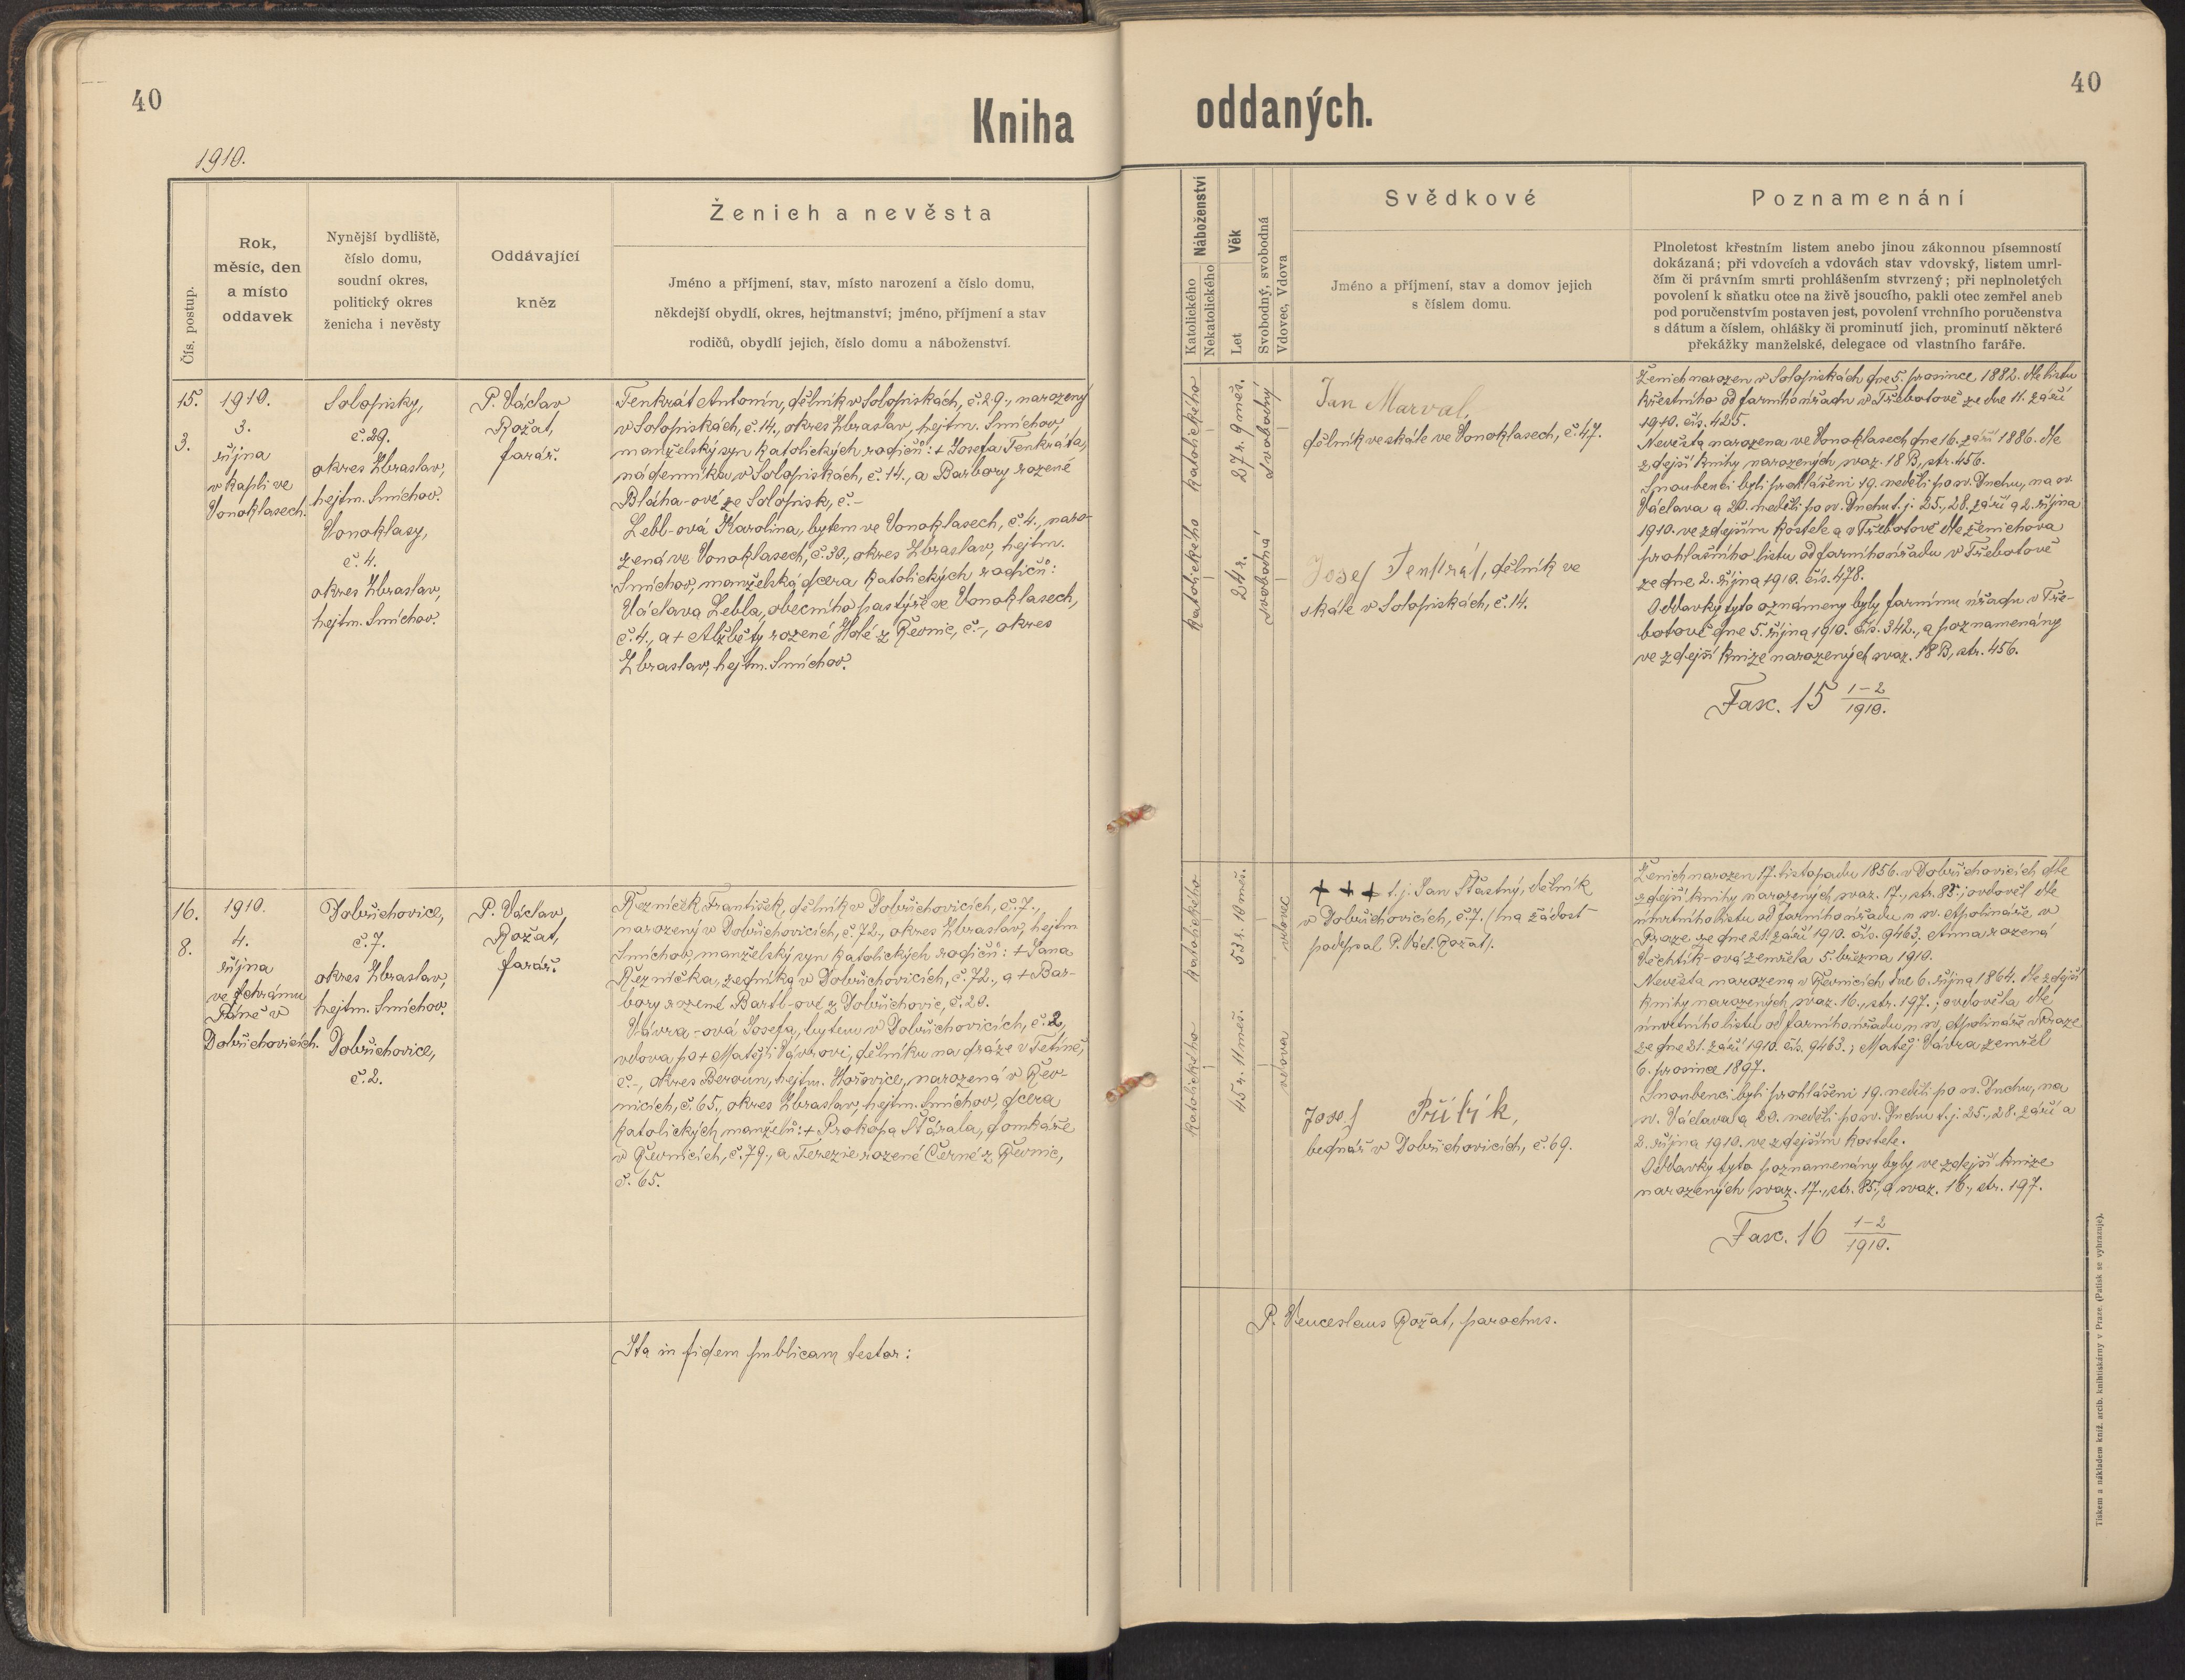 40
Kniha
1910.
Čís. postup.
Rok,
měsíc, den
a místo
oddavek
Nynější bydliště,
číslo domu,
soudní okres,
politický okres
ženicha i nevěsty
Oddávající
kněz
Ženich a nevěsta
Jméno a příjmení, stav, místo narození a číslo domu,
někdejší obydlí, okres, hejtmanství; jméno, příjmení a stav
rodičů, obydlí jejich, číslo domu a náboženství.
15.
3.
1910.
3.
října
v kapli ve
Vonoklasech.
Solopisky,
č. 29.
okres Zbraslav,
hejtm. Smíchov.
Vonoklasy,
č. 4.
okres Zbraslav,
hejtm. Smíchov.
P. Václav
Rožat,
farář.
Tenkrát Antonín, dělník v Solopiskách, č. 29., narozený
v Solopiskách, č. 14., okres Zbraslav, hejtm. Smíchov,
manželský syn katolických rodičů: + Josefa Tenkráta,
nádenníka v Solopiskách, č. 14., a Barbory rozené
Bláha-ové ze Solopisk, č. -
Lebl-ová Karolina, bytem ve Vonoklasech, č. 4., naro-
zená ve Vonoklasech, č. 30., okres Zbraslav, hejtm.
Smíchov, manželská dcera katolických rodičů:
Václava Lebla, obecního pastýře ve Vonoklasech,
č. 4., a + Alžběty rozené Holé z Řevnic, č. -, okres
Zbraslav, hejtm. Smíchov.
16.
8.
1910.
4.
října
ve chrámu
Páně v
Dobřichovicích.
Dobřichovice,
č. 7.
okres Zbraslav,
hejtm. Smíchov.
Dobřichovice,
č. 2.
P. Václav
Rožat,
farář.
Řezníček František, dělník v Dobřichovicích, č. 7.,
narozený v Dobřichovicích, č. 72., okres Zbraslav, hejtm.
Smíchov, manželský syn katolických rodičů: + Jana
Řezníčka, zedníka v Dobřichovicích, č. 72., a + Bar-
bory rozené Bartl-ové z Dobřichovic, č. 20.
Vávra-ová Josefa, bytem v Dobřichovicích, č. 2,
vdova po + Matěji Vávrovi, dělníku na dráze v Tetíně,
č. -, okres Beroun, hejtm. Hořovice, narozená v Řev-
nicích, č. 65., okres Zbraslav, hejtm. Smíchov, dcera
katolických manželů: + Prokopa Šťárala, domkáře
v Řevnicích, č. 79., a Terezie rozené Černé z Řevnic,
č. 65.
Ita in fidem publicam testor:
40
oddaných.
Náboženství
Katolického
Nekatolického
Věk
Let
Svobodný, svobodná
Vdovec, Vdova
Svědkové
Jméno a příjmení, stav a domov jejich
s číslem domu.
Poznamenání
Plnoletost křestním listem anebo jinou zákonnou písemností
dokázaná; při vdovcích a vdovách stav vdovský, listem umrl-
čím či právním smrti prohlášením stvrzený; při neplnoletých
povolení k sňatku otce na živě jsoucího, pakli otec zemřel aneb
pod poručenstvím postaven jest, povolení vrchního poručenstva
s dátum a číslem, ohlášky či prominutí jich, prominutí některé
překážky manželské, delegace od vlastního faráře.
katolického
27 r. 9 měs.
svobodný
katolického
24 r.
svobodná
Jan Marval,
dělník ve skále ve Vonoklasech, č. 47.
Josef Tenkrát, dělník ve
skále v Solopiskách, č. 14.
Ženich narozen v Solopiskách dne 5. prosince 1882. dle listu
křestního od farního úřadu v Třebotově ze dne 11. září
1910. čís. 425.
Nevěsta narozena ve Vonoklasech dne 16. září 1886. dle
zdejší knihy narozených svaz. 18 B, str. 456.
Snoubenci byli prohlášeni 19. neděli po sv. Duchu, na sv.
Václava a 20. neděli po sv. Duchu t. j. 25., 28. září a 2. října
1910. ve zdejším kostele a v Třebotově dle ženichova
prohlašního listu od farního úřadu v Třebotově
ze dne 2. října 1910. čís. 478.
Oddavky tyto oznámeny byly farnímu úřadu v Tře-
botově dne 5. října 1910. čís. 342., a poznamenány
ve zdejší knize narozených svaz. 18 B, str. 456.
Fasc. 15 1-2/1910.
katolického
53 r. 10 měs.
vdovec
katolického
45 r. 11 měs.
vdova
+ + + t. j. Jan Šťastný, dělník
v Dobřichovicích, č. 7. (na žádost
podepsal P. Václ. Rožat).
Josef Přibík,
bednář v Dobřichovicích, č. 69.
Ženich narozen 17. listopadu 1856. v Dobřichovicích dle
zdejší knihy narozených svaz. 17., str. 85.; ovdověl dle
úmrtního listu od farního úřadu u sv. Apolináře v
Praze ze dne 21. září 1910. čís. 9463, Anna rozená
Věchtík-ová zemřela 5. března 1910.
Nevěsta narozena v Řevnicích dne 6. října 1864. dle zdejší
knihy narozených svaz. 16., str. 197.; ovdověla dle
úmrtního listu od farního úřadu u sv. Apolináře v Praze
ze dne 21. září 1910. čís. 9463.; Matěj Vávra zemřel
6. prosince 1897.
Snoubenci byli prohlášeni 19. neděli po sv. Duchu, na
sv. Václava a 20. neděli po sv. Duchu t. j. 25., 28. září a
2. října 1910. ve zdejším kostele.
Oddavky tyto poznamenány byly ve zdejší knize
narozených svaz. 17., str. 85., a svaz. 16., str. 197.
Fasc. 16 1-2/1910.
P. Venceslaus Rožat, parochus.
Tiskem a nákladem kníž. arcib. knihtiskárny v Praze. (Patisk se vyhrazuje).